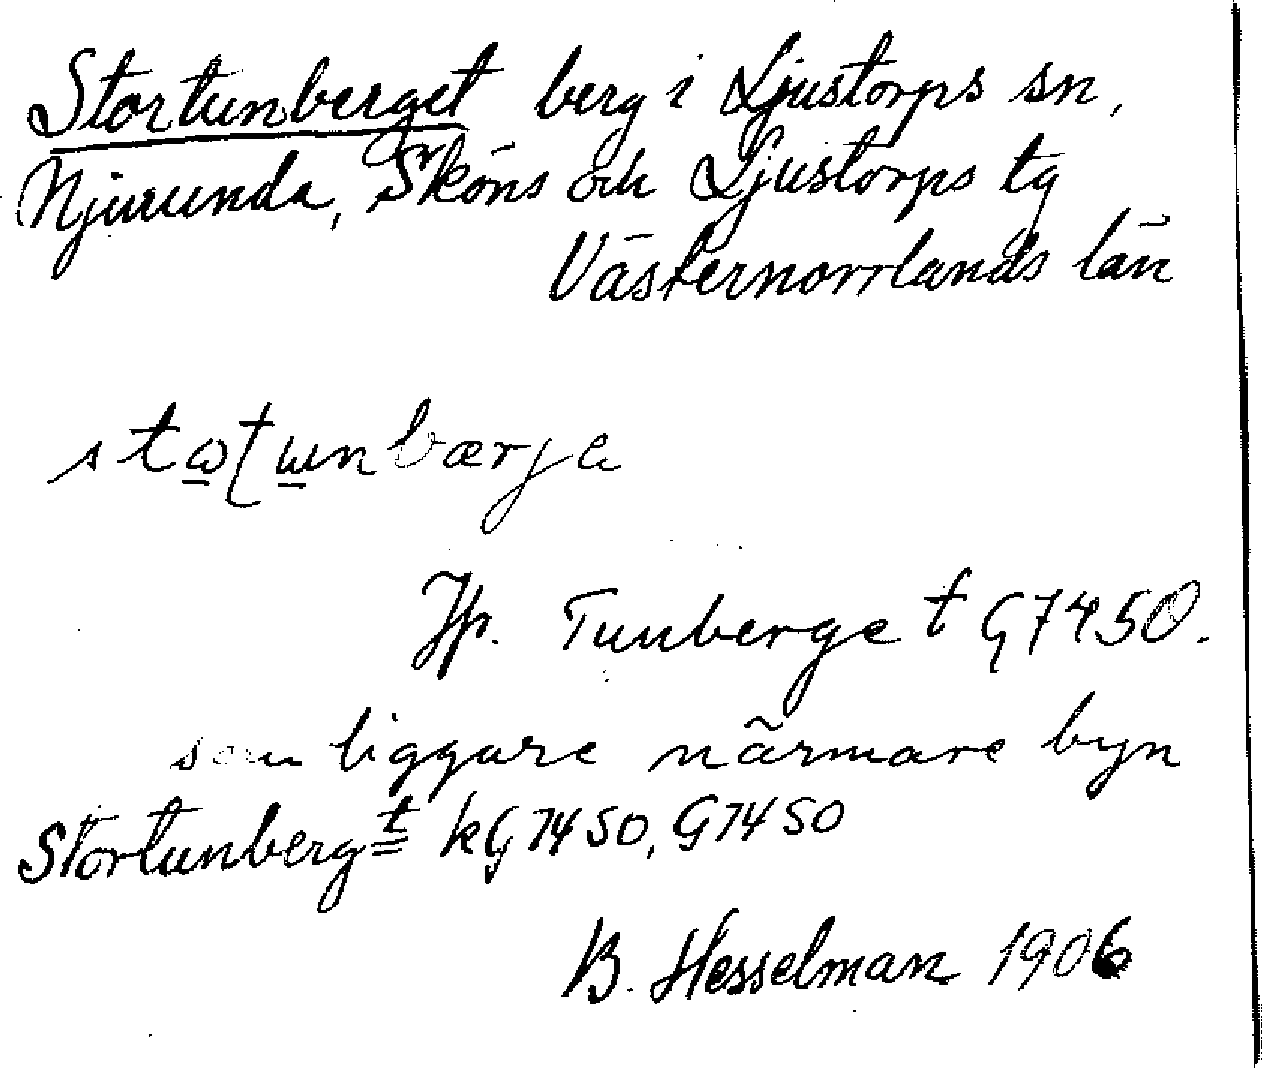 Stortunberget berg i Ljustorps sn,
Njurunda, Sköns och Ljustorps tg
Västernorrlands län
Jfr. Tunberget G7450.
som liggare närmare byn
Stortunbergt kG7450, G7450
B. Hesselman 1906